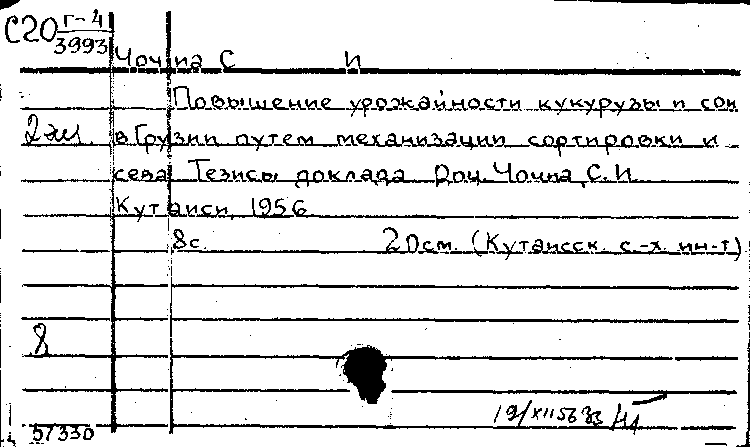 С20 Г-4
3993
Чочиа С И
Повышение урожайности кукурузы и сои
2 экз. в Грузии путем механизации сортировки и
сева Тезисы доклада Доц. Чочиа, С. И.
Кутаиси, 1956
8с. 20см. (Кутаисск. с.-х. ин-т)
8
57330